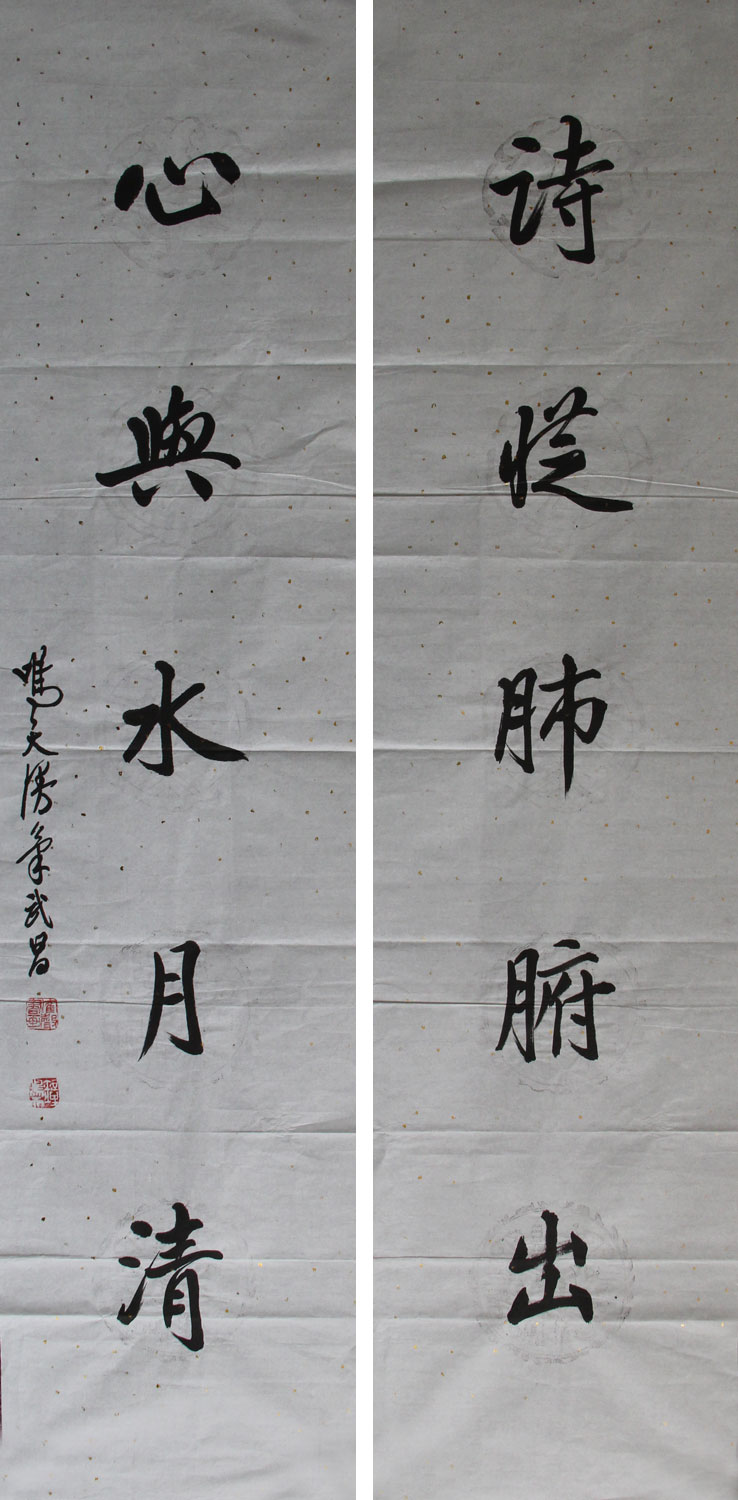 诗從肺腑出
心與水月清
武昌